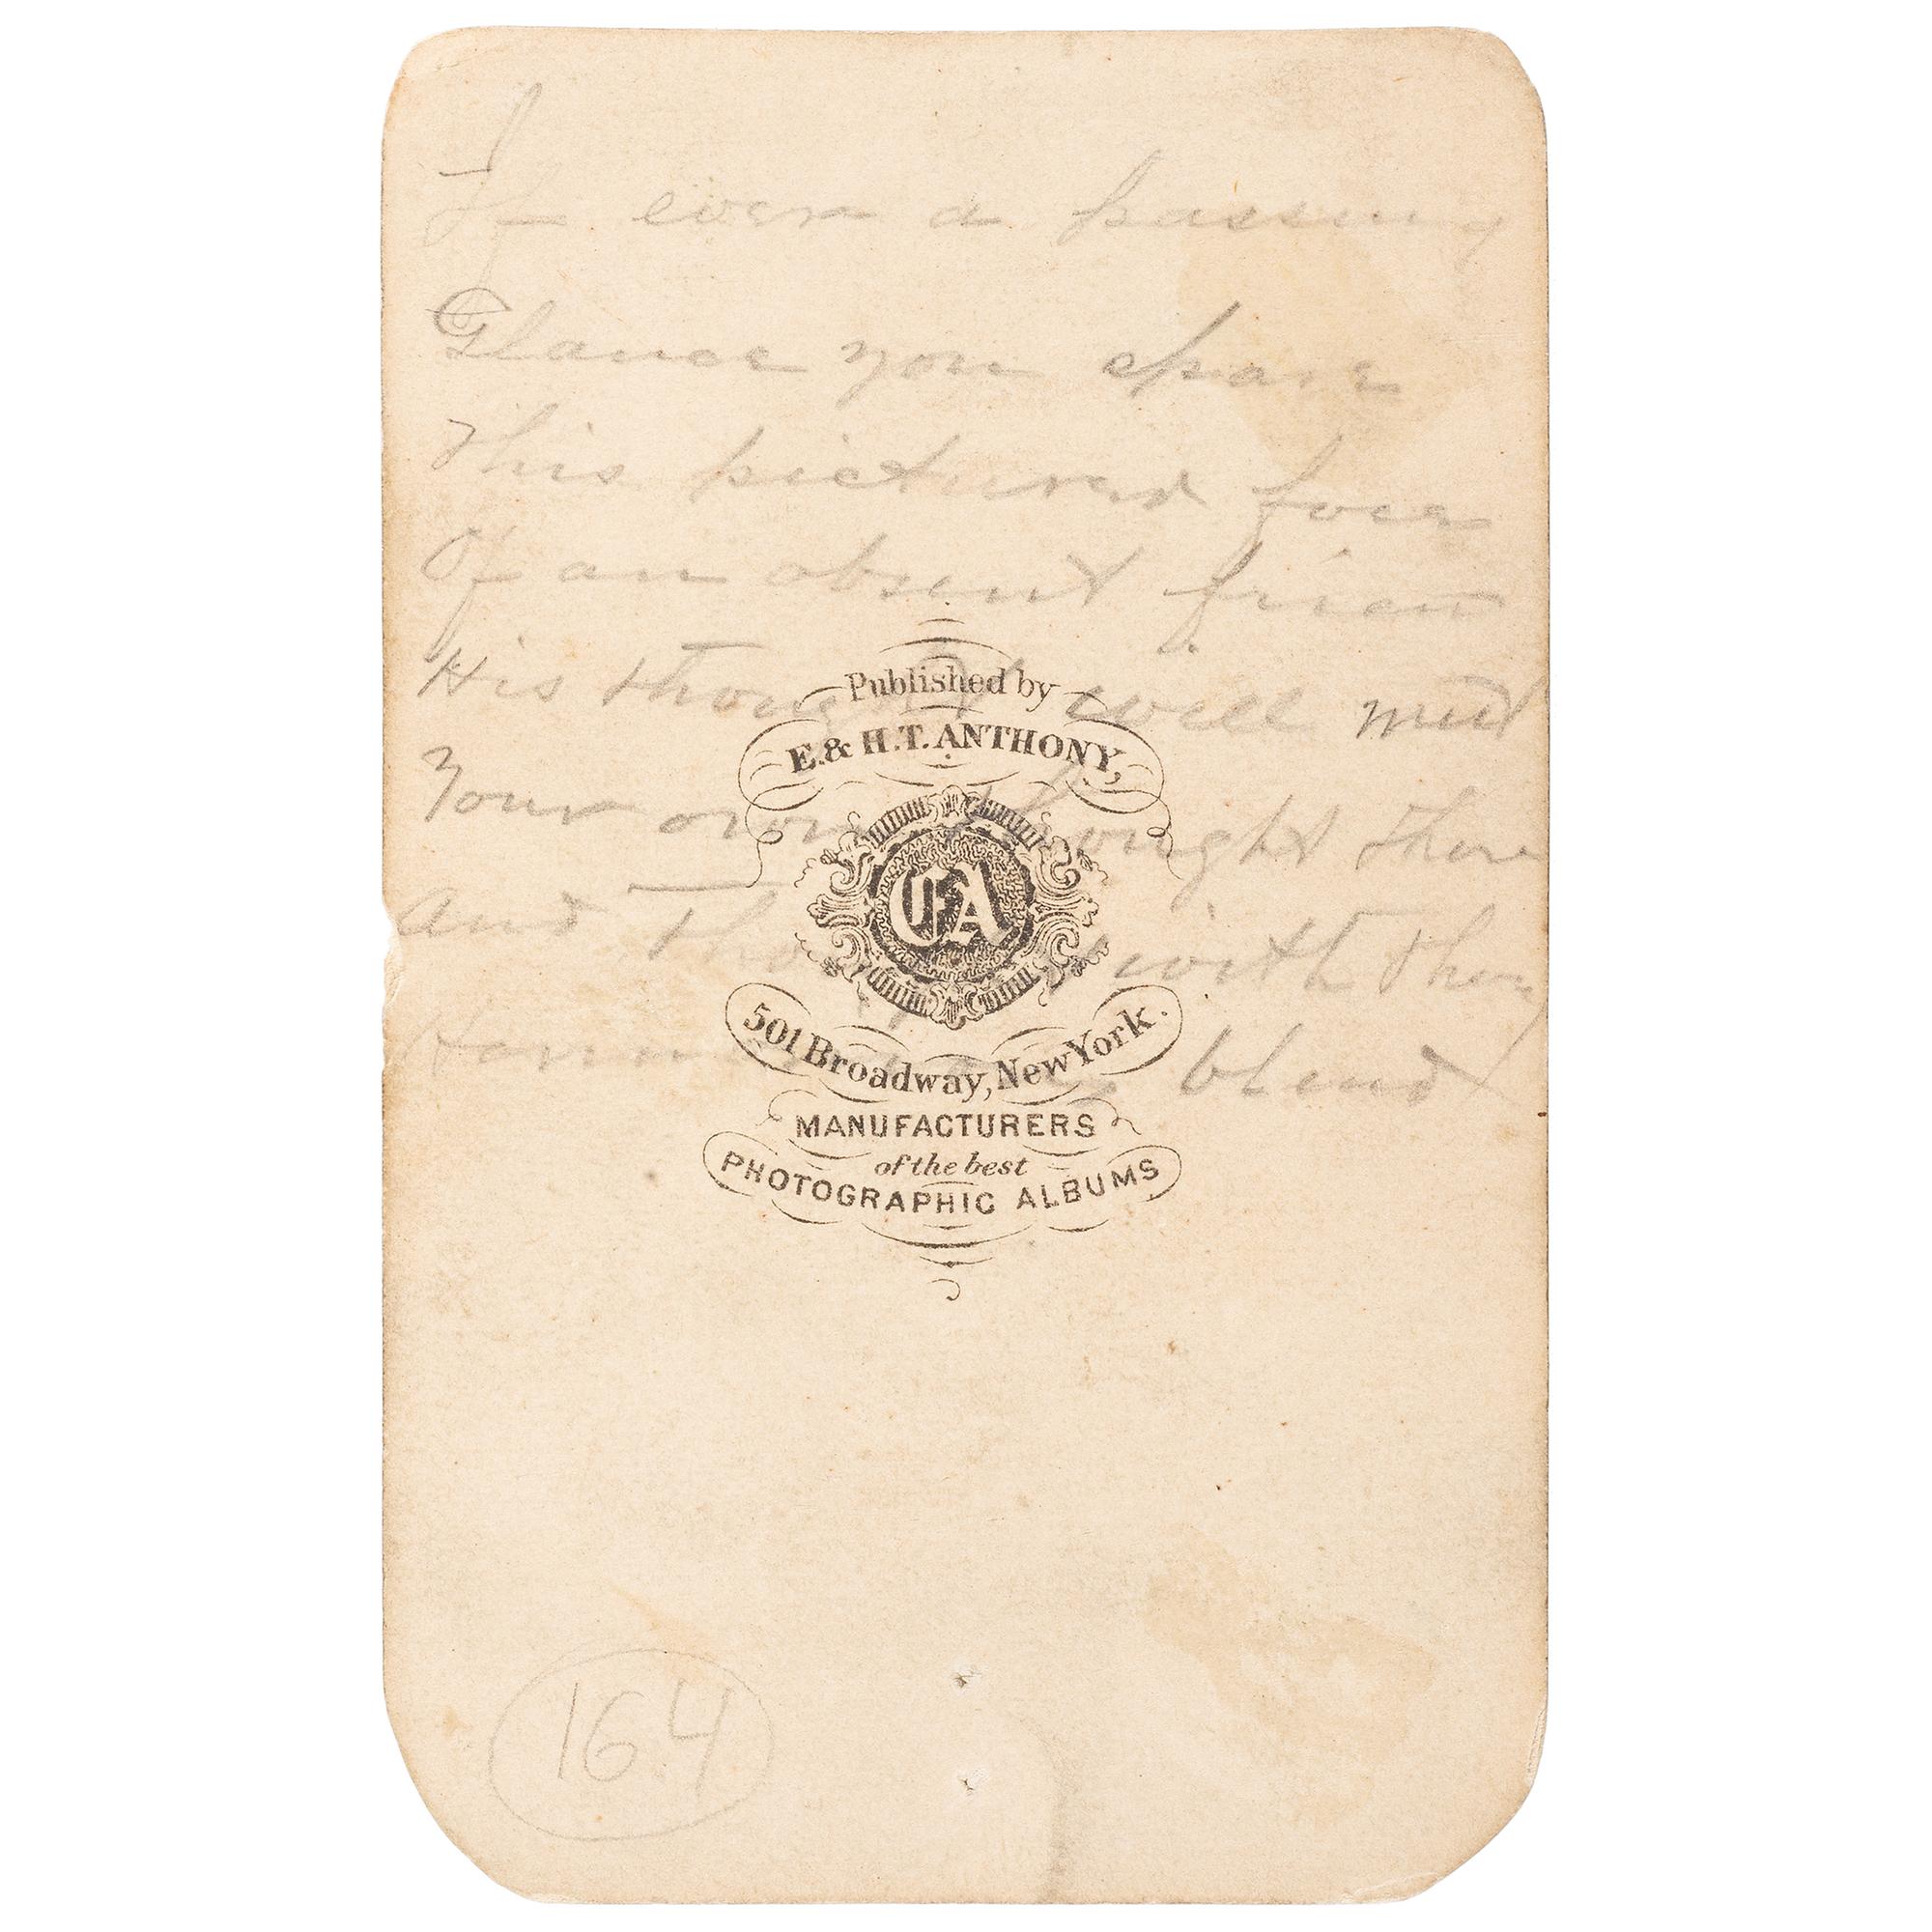 If ever a passing
Glance you spare
This pictured face
Of an absent frien
His thought will meet
Your own thought there
And with
blend
Published by
E. & H. T. ANTHONY,
EA
501 Broadway, New York.
MANUFACTURERS
of the best
PHOTOGRAPHIC ALBUMS
164